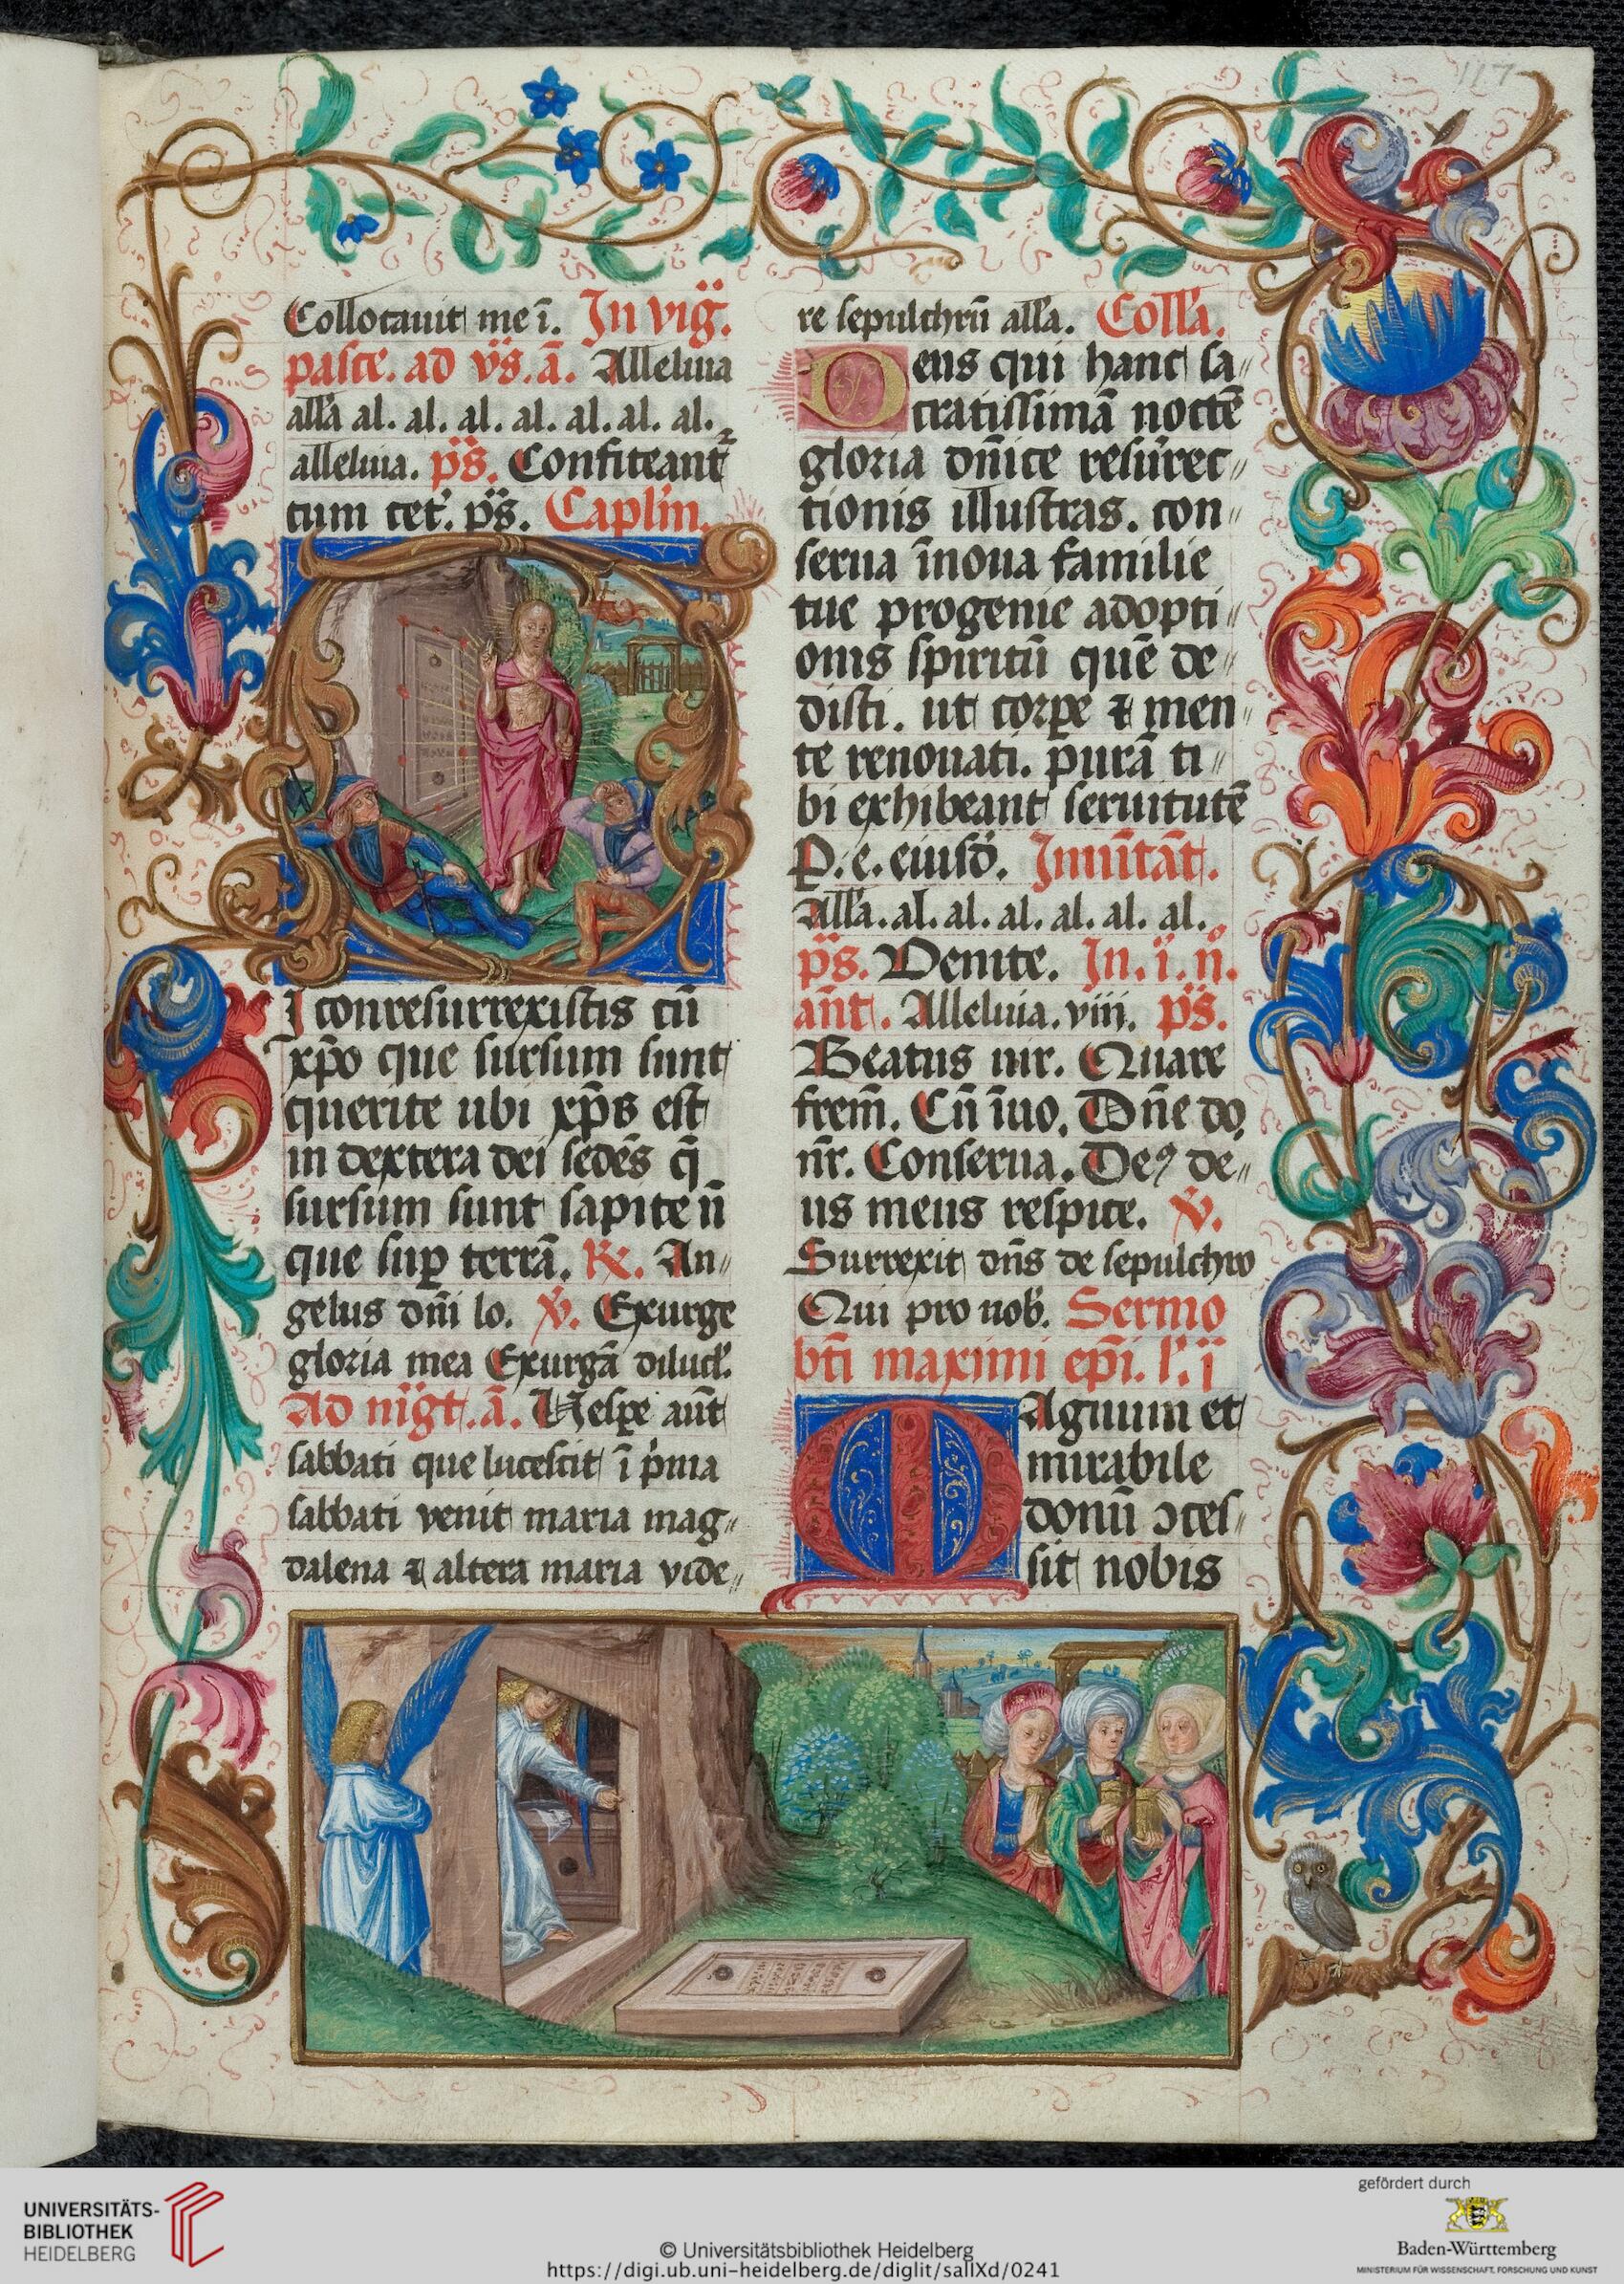 117
Collocauit me ī. In vig̈.
pasce. ad v̈s. ā. Alleluia
all'a al. al. al. al. al. al. al.
alleluia. p̈s. Confiteant᷑
tum cet'. p̈s. Caplm̄.
I conresurrexistis cū
xp̄o que sursum sunt
querite ubi xp̄s est
in dextera dei sedēs q̄
sursum sunt sapite n̄
que suꝑ terrā. ℟. An„
gelus dn̄i lo. ℣. Exurge
gloria mea Exurgā diluc̄l'.
Ad nigt. ā. Vesꝑe aūt
sabbati que lucescit ī p'ma
sabbati venit maria mag„
dalena ⁊ altera maria vide„
re sepulchrū all'a. Coll'a.
Deus qui hanc sa„
cratissimā noctē
gloria dn̄ice resurrec„
tionis illustras. con„
serua īnoua familie
tue progenie adopti„
onis spiritū quē de„
disti. ut corꝑe ⁊ men„
te renouati. purā ti„
bi exhibeant seruitutē
P. e. eiusd'. Inuitāt.
All'a. al. al. al. al. al. al.
p̈s. Venite. In. i. n̊.
añt. Alleluia. viii. p̈s.
Beatus uir. Quare
frem̄. Cū īuo. Dn̄e do.
n̄r. Conserua. Deꝰ de„
us meus respice. ℣.
Surrexit dn̄s de sepulchro
Qui pro nob'. Sermo
bt̄i maximi ep̄i. l'. i
MAgnum et
mirabile
donū ↄces„
sit nobis
UNIVERSITÄTS-
BIBLIOTHEK
HEIDELBERG
© Universitätsbibliothek Heidelberg
https://digi.ub.uni-heidelberg.de/diglit/salIXd/0241
gefördert durch
Baden-Württemberg
MINISTERIUM FÜR WISSENSCHAFT, FORSCHUNG UND KUNST